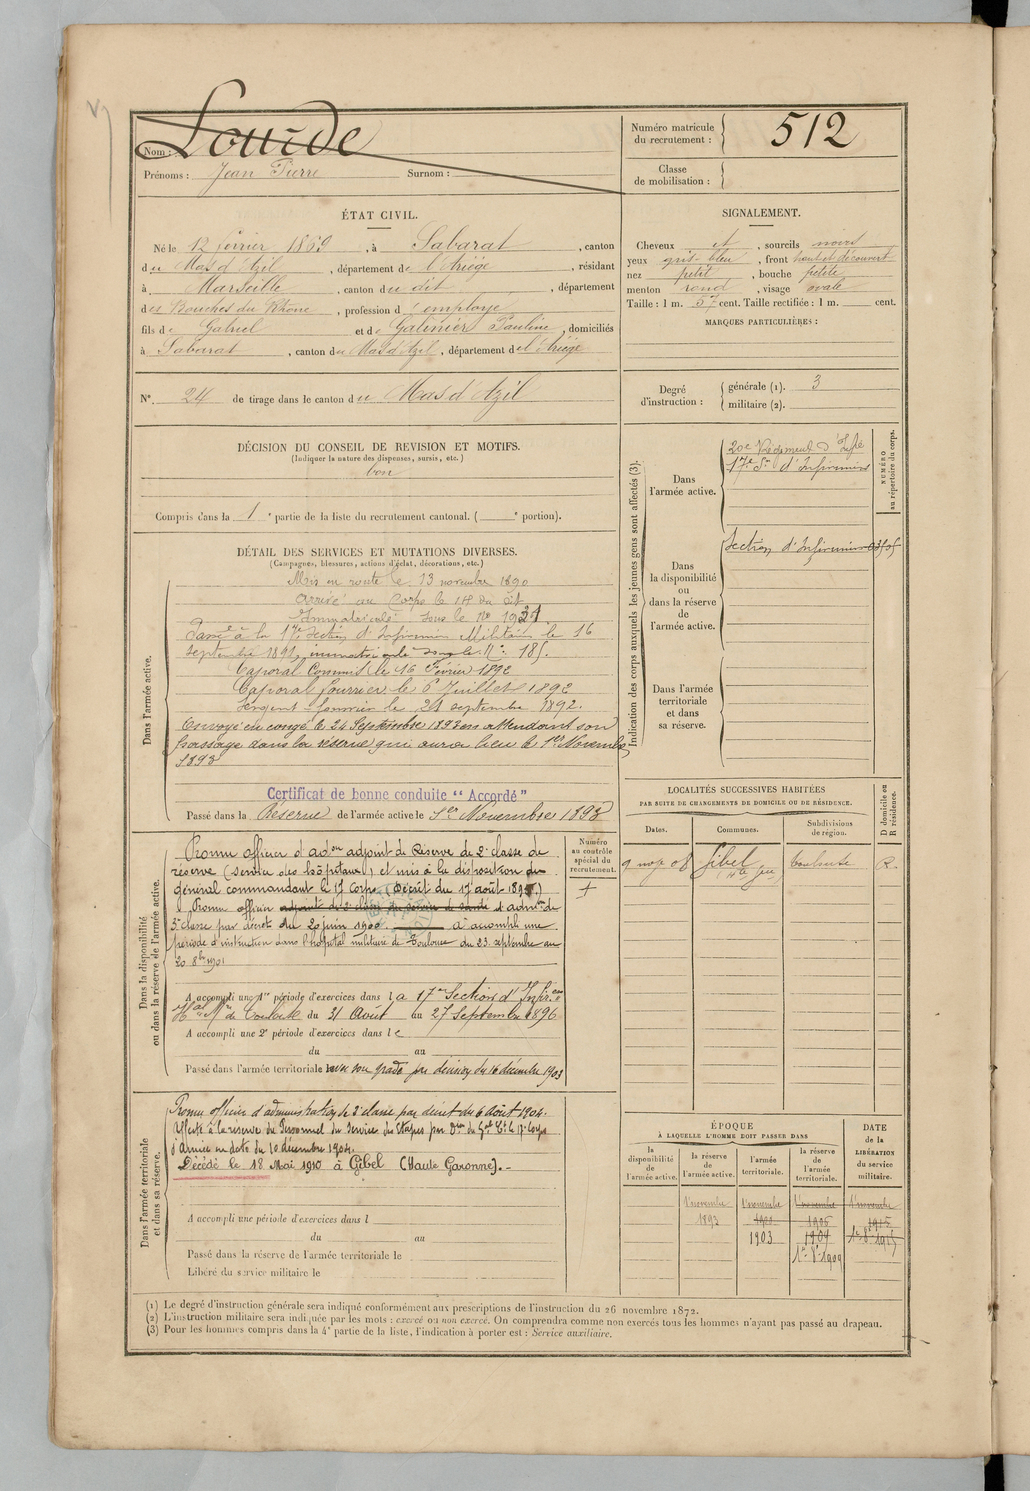 Lourde
Nom :
Prénoms : Jean Pierre Surnom :
Numéro matricule
du recrutement : 512
Classe
de mobilisation :
ÉTAT CIVIL.
Né le 12 février 1869, à Sabarat, canton
du Mas d'Azil, département de l'Ariège, résidant
à Marseille, canton du dit, département
des Bouches du Rhône, profession d'employé
fils de Gabriel et de Galinier Pauline, domiciliés
à Sabarat, canton du Mas d'Azil, département de l'Ariège
N° 24 de tirage dans le canton du Mas d'Azil
SIGNALEMENT.
Cheveux et, sourcils noirs
yeux gris-bleu, front haut et découvert
nez petit, bouche petite
menton rond, visage ovale
Taille : 1 m. 57 cent. Taille rectifiée : 1 m. cent.
MARQUES PARTICULIÈRES :
Degré
d'instruction :
générale (1). 3
militaire (2).
DÉCISION DU CONSEIL DE REVISION ET MOTIFS.
(Indiquer la nature des dispenses, sursis, etc.)
bon
Compris dans la 1e partie de la liste du recrutement cantonal. ( e portion).
DÉTAIL DES SERVICES ET MUTATIONS DIVERSES.
(Campagnes, blessures, actions d'éclat, décorations, etc.)
Dans l'armée active.
Mis en route le 13 novembre 1890
arrivé au Corps le 14 du dit
Immatriculé sous le No
Passé à la 17e Section d'Infirmiers Militaires le 16
septembre 1891, immatriculé sous le No 185.
Caporal Commis le 16 Février 1892
Caporal fourrier le 6 Juillet 1892
Sergent-fourrier le 21 septembre 1892.
Envoyé en congé le 24 Septembre 1893 en attendant son
passage dans la réserve qui aura lieu le 1er Novembre
1893
Certificat de bonne conduite "Accordé"
Passé dans la Réserve de l'armée active le 1er Novembre 1893
Indication des corps auxquels les jeunes gens sont affectés (3).
NUMÉRO
au répertoire du corps.
Dans
l'armée active.
20e Régiment d'Infie
17e Son d'Infirmiers
Dans
la disponibilité
ou
dans la réserve
de
l'armée active.
Section d'Infirmiers
Dans l'armée
territoriale
et dans
sa réserve.
LOCALITÉS SUCCESSIVES HABITÉES
PAR SUITE DE CHANGEMENTS DE DOMICILE OU DE RÉSIDENCE.
Dates.
Communes.
Subdivisions
de région.
D domicile ou
R résidence.
9 nov 08 Gibel Toulouse R.
Dans la disponibilité
ou dans la réserve de l'armée active.
Numéro
au contrôle
spécial du
recrutement.
Promu officier d'adon adjoint de Réserve de 2e classe de
réserve (service des hôpitaux) et mis à la disposition du
général commandant le 17 Corps. (Décret du 17 août 1895.)
Promu officier adjoint de 2e classe du service de santé d'admon de
3e classe par décret du 20 juin 1900. a accompli une
période d'instruction dans l'hôpital militaire de Toulouse du 23 septembre au
20 8bre 1901
A accompli une 1re période d'exercices dans la 17me Section d'Infires
Hal Mre de Toulouse du 31 Août au 27 Septembre 1896
A accompli une 2e période d'exercices dans le
du au
Passé dans l'armée territoriale avec son grade par décision du 16 décembre 1903
Dans l'armée territoriale
et dans sa réserve.
Promu officier d'administration de 2e classe par décret du 6 août 1904.
Affecté à la réserve du Personnel du Service des Étapes par Don du Gal Ct le 17e Corps
d'Armée en date du 10 décembre 1904.
Décédé le 18 Mai 1910 à Gibel (Haute Garonne).-
A accompli une période d'exercices dans l
du au
Passé dans la réserve de l'armée territoriale le
Libéré du service militaire le
ÉPOQUE
À LAQUELLE L'HOMME DOIT PASSER DANS
DATE
de la
LIBÉRATION
du service
militaire.
la
disponibilité
de
l'armée active.
la réserve
de
l'armée active.
l'armée
territoriale.
la réserve
de
l'armée
territoriale.
1 novembre 1 novembre 1 novembre 1 novembre
1893
1903
1er 8e 1909
(1) Le degré d'instruction générale sera indiqué conformément aux prescriptions de l'instruction du 26 novembre 1872.
(2) L'instruction militaire sera indiquée par les mots : exercé ou non exercé. On comprendra comme non exercés tous les hommes n'ayant pas passé au drapeau.
(3) Pour les hommes compris dans la 4e partie de la liste, l'indication à porter est : Service auxiliaire.